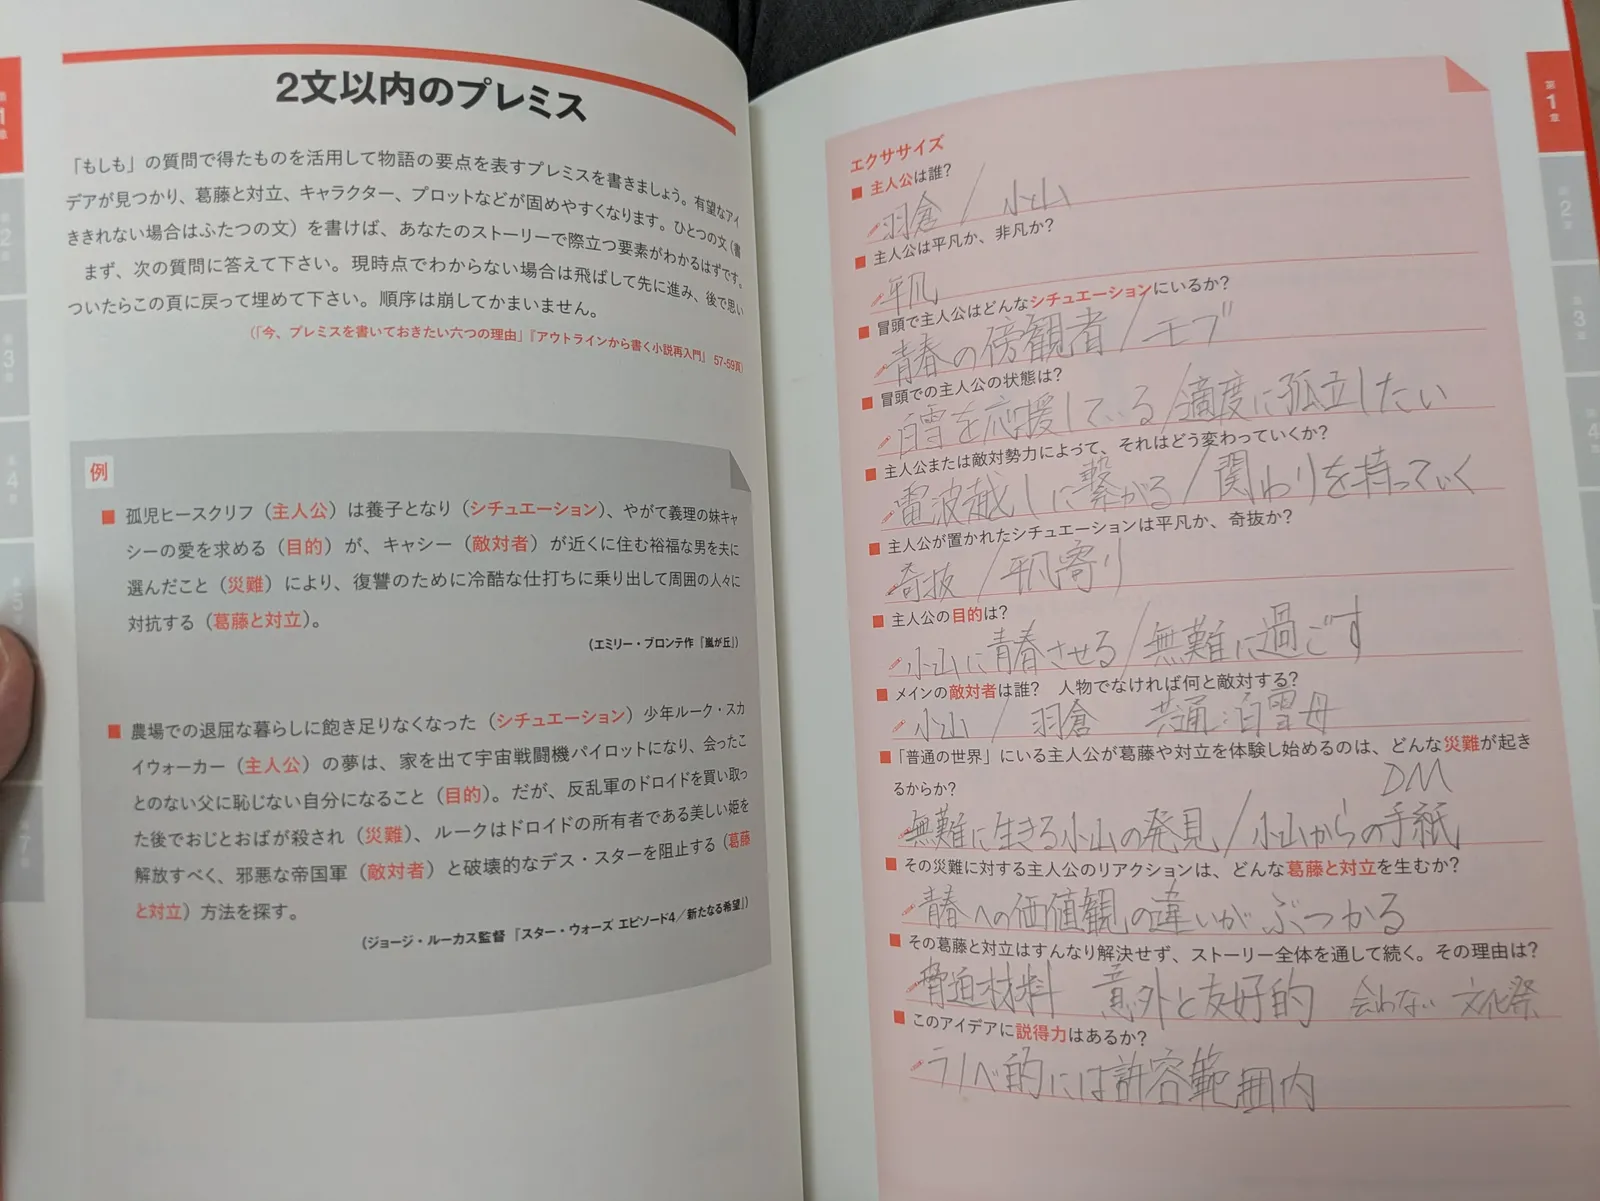 2文以内のプレミス
「もしも」の質問で得たものを活用して物語の要点を表すプレミスを書きましょう。有望なアイ
デアが見つかり、葛藤と対立、キャラクター、プロットなどが固めやすくなります。ひとつの文(書
ききれない場合はふたつの文)を書けば、あなたのストーリーで際立つ要素がわかるはずです。
まず、次の質問に答えて下さい。現時点でわからない場合は飛ばして先に進み、後で思い
ついたらこの頁に戻って埋めて下さい。順序は崩してかまいません。
(「今、プレミスを書いておきたい六つの理由」『アウトラインから書く小説再入門』 57-59頁)
例
■ 孤児ヒースクリフ(主人公)は養子となり(シチュエーション)、やがて義理の妹キャ
シーの愛を求める(目的)が、キャシー(敵対者)が近くに住む裕福な男を夫に
選んだこと(災難)により、復讐のために冷酷な仕打ちに乗り出して周囲の人々に
対抗する(葛藤と対立)。
(エミリー・ブロンテ作『嵐が丘』)
■ 農場での退屈な暮らしに飽き足りなくなった(シチュエーション)少年ルーク・スカ
イウォーカー(主人公)の夢は、家を出て宇宙戦闘機パイロットになり、会ったこ
とのない父に恥じない自分になること(目的)。だが、反乱軍のドロイドを買い取っ
た後でおじとおばが殺され(災難)、ルークはドロイドの所有者である美しい姫を
解放すべく、邪悪な帝国軍(敵対者)と破壊的なデス・スターを阻止する(葛藤
と対立)方法を探す。
(ジョージ・ルーカス監督『スター・ウォーズ エピソード4/新たなる希望』)
第1章
第2章
第3章
第4章
第5章
第7章
エクササイズ
■ 主人公は誰?
羽倉 / 小山
■ 主人公は平凡か、非凡か?
平凡
■ 冒頭で主人公はどんなシチュエーションにいるか?
青春の傍観者/モブ
■ 冒頭での主人公の状態は?
白雪を応援している/適度に孤立したい
■ 主人公または敵対勢力によって、それはどう変わっていくか?
電波越しに繋がる/関わりを持っていく
■ 主人公が置かれたシチュエーションは平凡か、奇抜か?
奇抜 / 平凡寄り
■ 主人公の目的は?
小山に青春させる/無難に過ごす
■ メインの敵対者は誰? 人物でなければ何と敵対する?
小山 / 羽倉 共通:白雪母
■ 「普通の世界」にいる主人公が葛藤や対立を体験し始めるのは、どんな災難が起き
るからか?
DM
無難に生きる小山の発見/小山からの手紙
■ その災難に対する主人公のリアクションは、どんな葛藤と対立を生むか?
青春への価値観の違いがぶつかる
■ その葛藤と対立はすんなり解決せず、ストーリー全体を通して続く。その理由は?
脅迫材料 意外と友好的 会わない 文化祭
■ このアイデアに説得力はあるか?
ラノベ的には許容範囲内
第1章
第2章
第3章
第4章